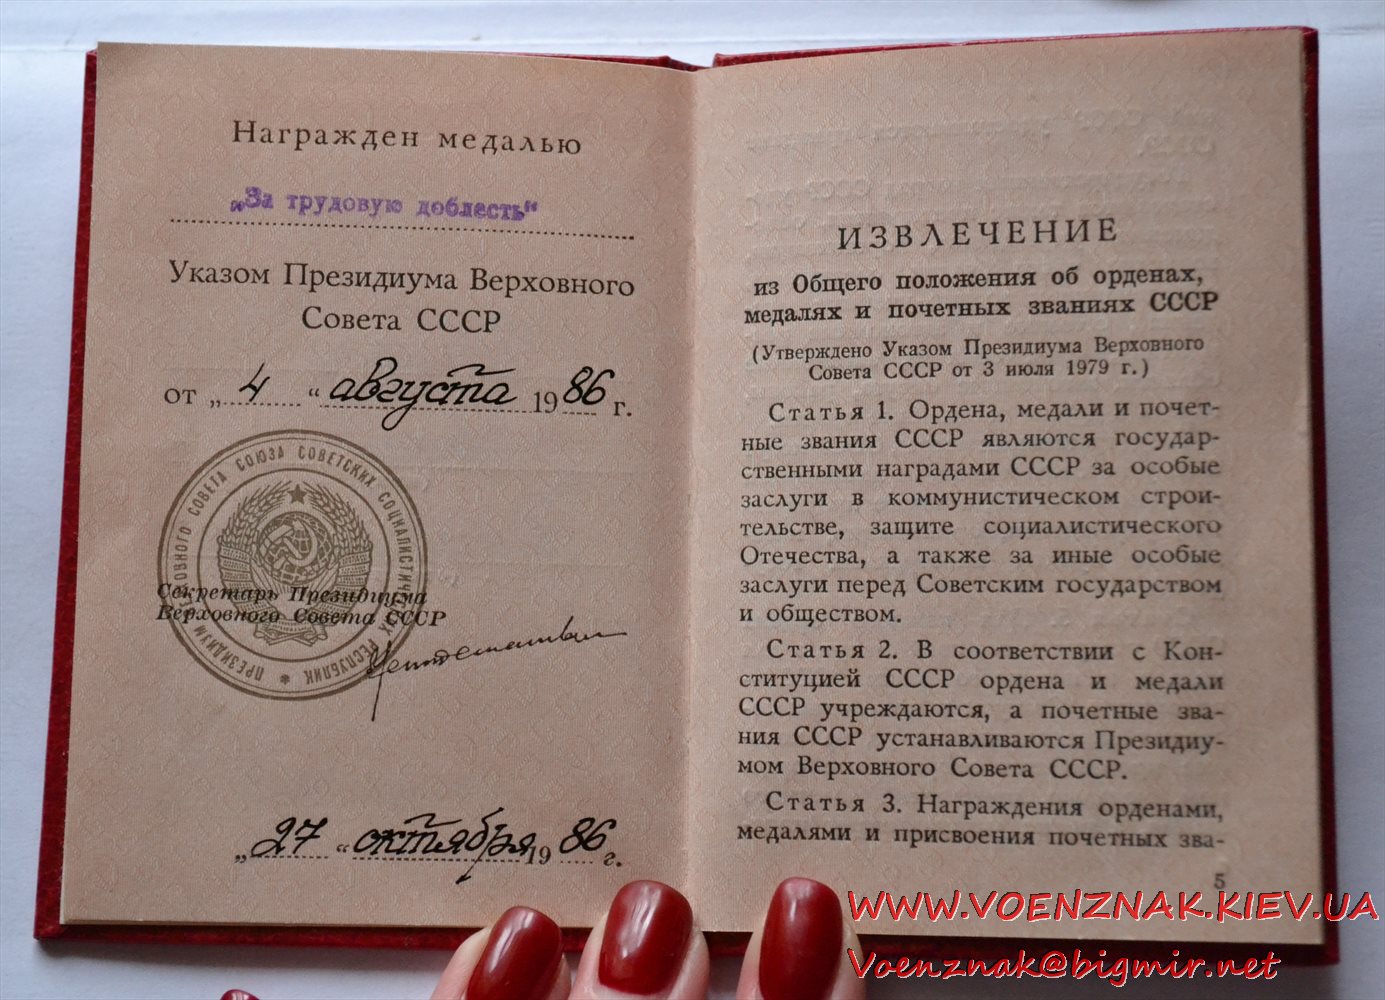 Награжден медалью
„За трудовую доблесть“
Указом Президиума Верховного
Совета СССР
от „ 4 “ августа 1986 г.
ПРЕЗИДИУМ ВЕРХОВНОГО СОВЕТА СОЮЗА СОВЕТСКИХ СОЦИАЛИСТИЧЕСКИХ РЕСПУБЛИК *
Секретарь Президиума
Верховного Совета СССР
„ 27 “ октября 1986 г.
ИЗВЛЕЧЕНИЕ
из Общего положения об орденах,
медалях и почетных званиях СССР
(Утверждено Указом Президиума Верховного
Совета СССР от 3 июля 1979 г.)
Статья 1. Ордена, медали и почет-
ные звания СССР являются государ-
ственными наградами СССР за особые
заслуги в коммунистическом строи-
тельстве, защите социалистического
Отечества, а также за иные особые
заслуги перед Советским государством
и обществом.
Статья 2. В соответствии с Кон-
ституцией СССР ордена и медали
СССР учреждаются, а почетные зва-
ния СССР устанавливаются Президиу-
мом Верховного Совета СССР.
Статья 3. Награждения орденами,
медалями и присвоения почетных зва-
5
WWW.VOENZNAK.KIEV.UA
Voenznak@bigmir.net